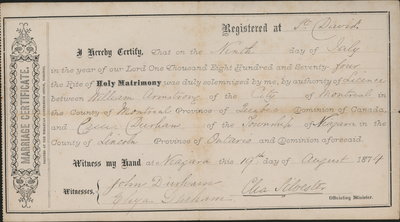 MARRIAGE CERTIFICATE.
Registered at St. David's
I Hereby Certify, That on the Ninth day of July
in the year of our Lord One Thousand Eight Hundred and Seventy-four
the Rite of Holy Matrimony was duly solemnized by me, by authority of Licence
between William Armstrong of the City of Montreal in
the County of Montreal Province of Quebec Dominion of Canada,
and Durham of the Township of Niagara in the
County of Lincoln Province of Ontario, and Dominion aforesaid.
Witness my Hand at Niagara this 19th day of August 1874
Witnesses, John Durham
Durham
Officiating Minister.